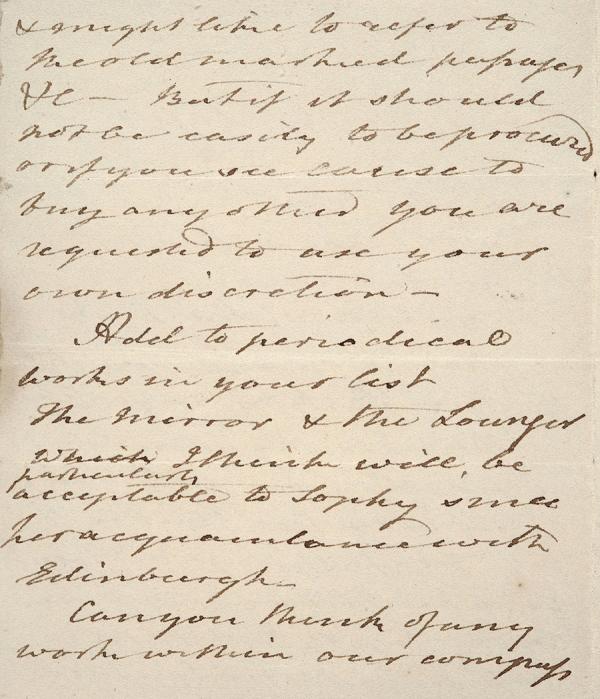 & might like to refer to
the old marked passages
&c — But if it should
not be easily to be procured
or if you see cause to
buy any other you are
requested to use your
own discretion —
Add to periodical
works in your list
The Mirror & the Lounger
which I think will be
particularly
acceptable to Sophy since
her acquaintance with
Edinburgh —
Can you think of any
work within our compass